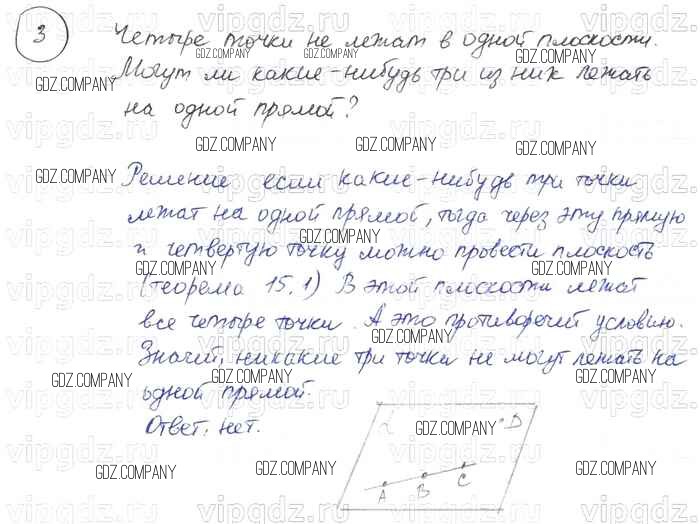 3
Четыре точки не лежат в одной плоскости.
Могут ли какие-нибудь три из них лежать
на одной прямой?
Решение если какие-нибудь три точки
лежат на одной прямой, тогда через эту прямую
и четвертую точку можно провести плоскость
(теорема 15.1) В этой плоскости лежат
все четыре точки. А это противоречий условию.
Значит, никакие три точки не могут лежать на
одной прямой.
Ответ, нет.
α D
A B C
GDZ.COMPANY
vipgdz.ru